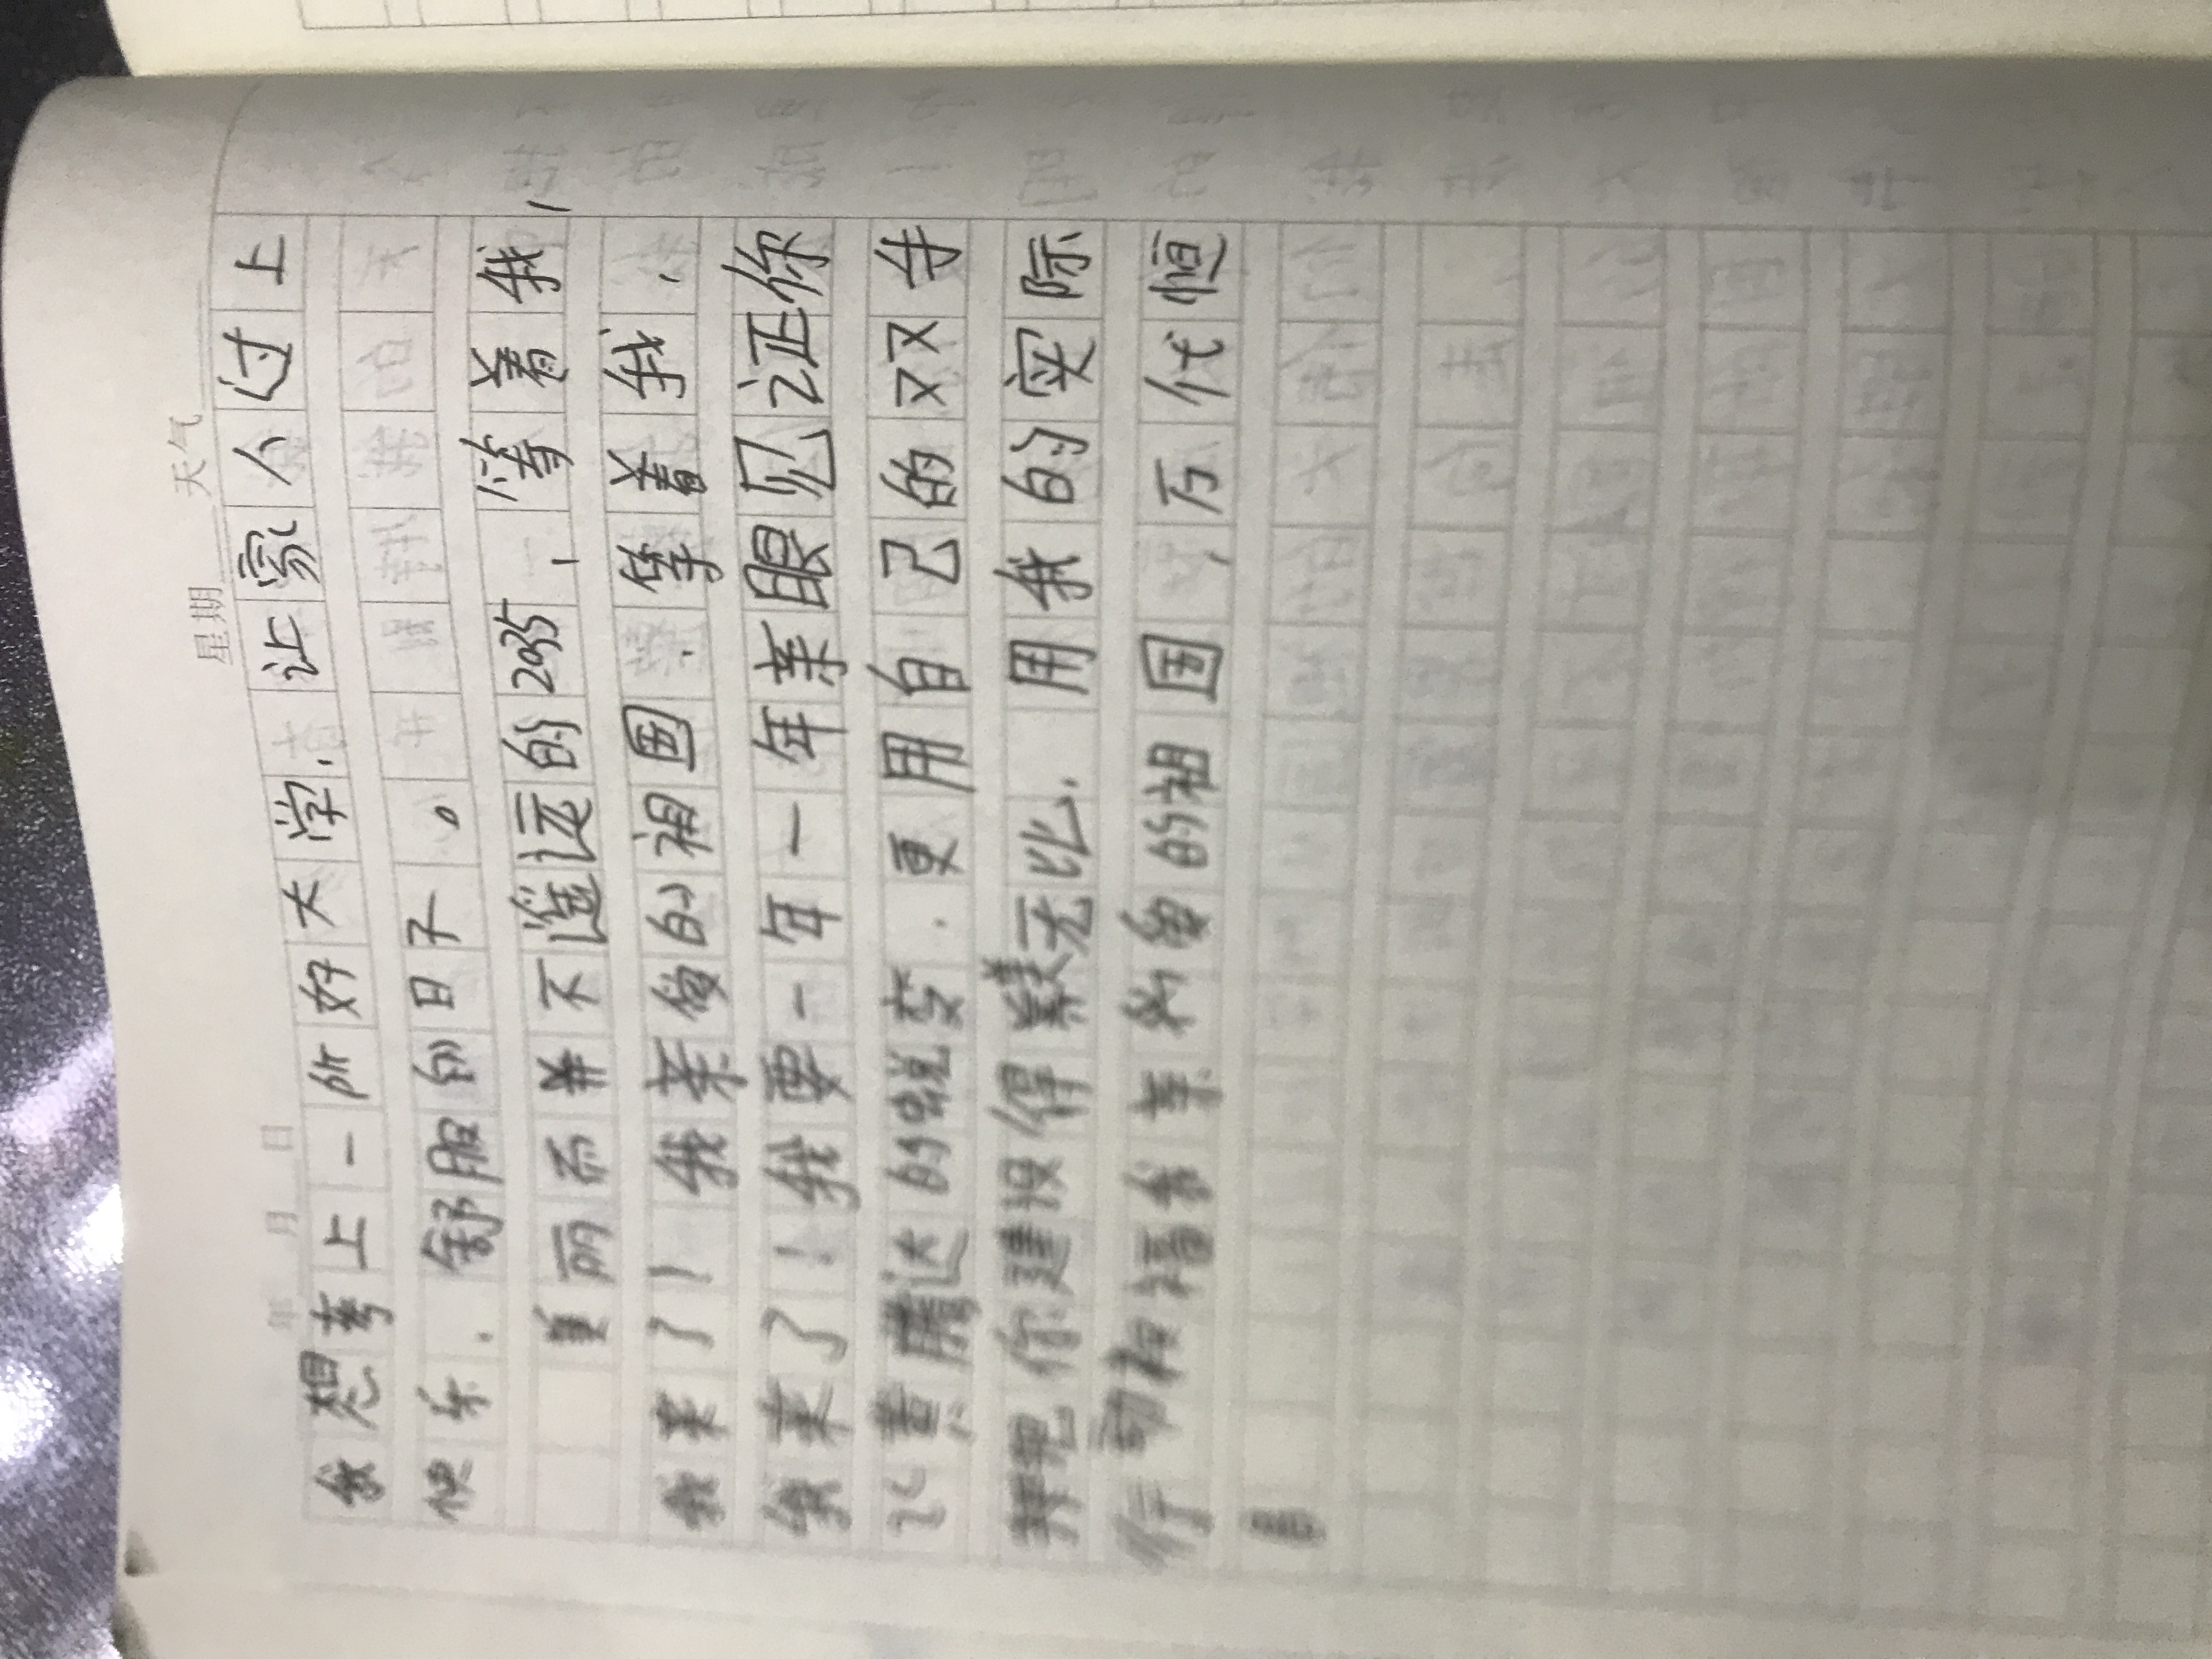 年 月 日 星期 天气
我想考上一所好大学,让家人过上
快乐、舒服的日子。
美丽而并不遥远的2035,等着我,
我来了!我亲爱的祖国,等着我,
我来了!我要一年一年亲眼见证你
飞黄腾达的蜕变,更用自己的双手
把你建设得美无比,用我的实际
行动祝福我亲爱的祖国,万代恒
昌